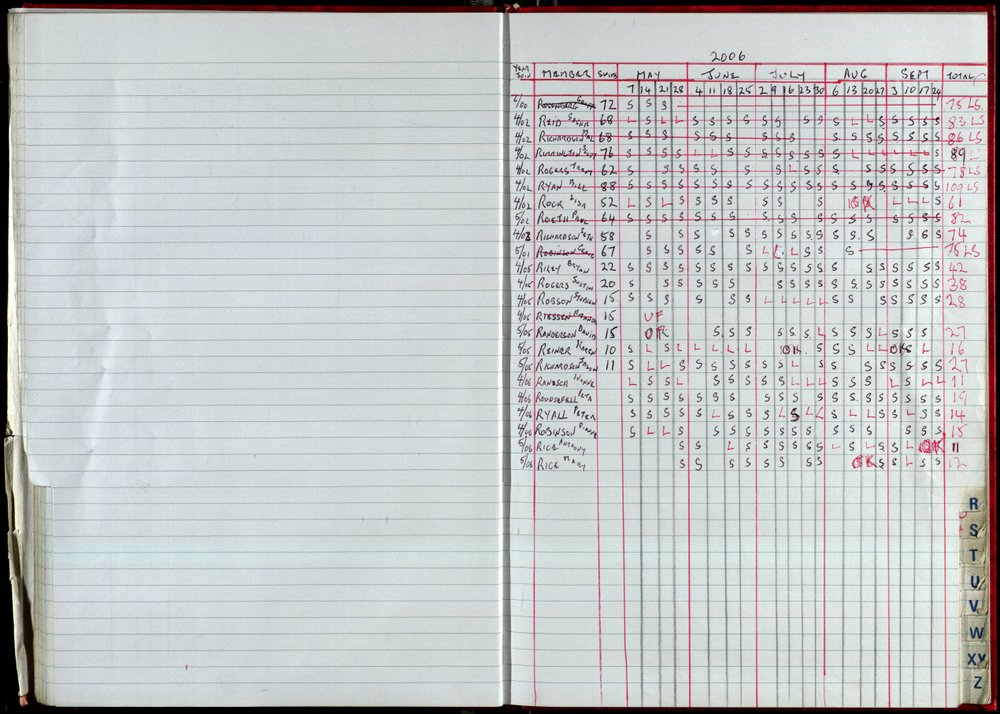 2006
YEAR JOIN MEMBER SWIMS MAY JUNE JULY AUG SEPT TOTAL
7 14 21 28 4 11 18 25 2 9 16 23 30 6 13 20 27 3 10 17 24
72 S S S 75 LS
4/02 REID SASHA 68 L S L L S S S S S S S S S S L L S S S S S 83 LS
4/02 RICHARDSON 68 S S S S S S S S S S S S S S S S 86 LS
4/02 76 S S S S L L S S S S S S S S L L L L L L S 89 L
4/02 ROGERS 62 S S S S S S S S L S S S S S S S S S 78 LS
4/02 RYAN BILL 88 S S S S S S S S S S S S S S S S S S S S S 109 LS
4/02 ROCK LISA 52 L S L S S S S S S S OK L L L S 61
5/02 ROETH PAUL 64 S S S S S S S S S S S S S S S S S S 82
RICHARDSON 58 S S S S S S S S S S S S S S S S 74
5/01 ROBINSON CRAIG 67 S S S S S S L L L S S S 75 LS
4/05 RILEY BRYAN 22 S S S S S S S S S S S S S S S S S S S S 42
4/05 ROGERS JUSTIN 20 S S S S S S S S S S S S S S S S S S 38
4/05 ROBSON STEPHEN 15 S S S S S S L L L L L S S S S S S S 28
15 UF
5/05 RANDERSON DAVID 15 OK S S S S S S L S S S L S S 27
5/05 REINER KAREN 10 S L S L L L L L OK S S S L L OK S L 16
5/05 RICHARDSON JASON 11 S L L S S S S S S S L S S S S S S S 27
4/06 RANESCA WAYNE L S S L S S S S S L L L S S S L S L L 11
4/06 PETA S S S S S S S S S S S S S S S S S S S 19
4/06 RYALL PETER S S S S S L S S S L S L L S L L S S L S S 14
4/06 ROBINSON DIANNE S L L S S S S S S S S S S S S S 15
5/06 RICE ANTHONY S S L S S S S S S L S L S S L OK 11
5/06 RICE MARY S S S S S S S S OK S S L S S 12
R
S
T
U
V
W
XY
Z